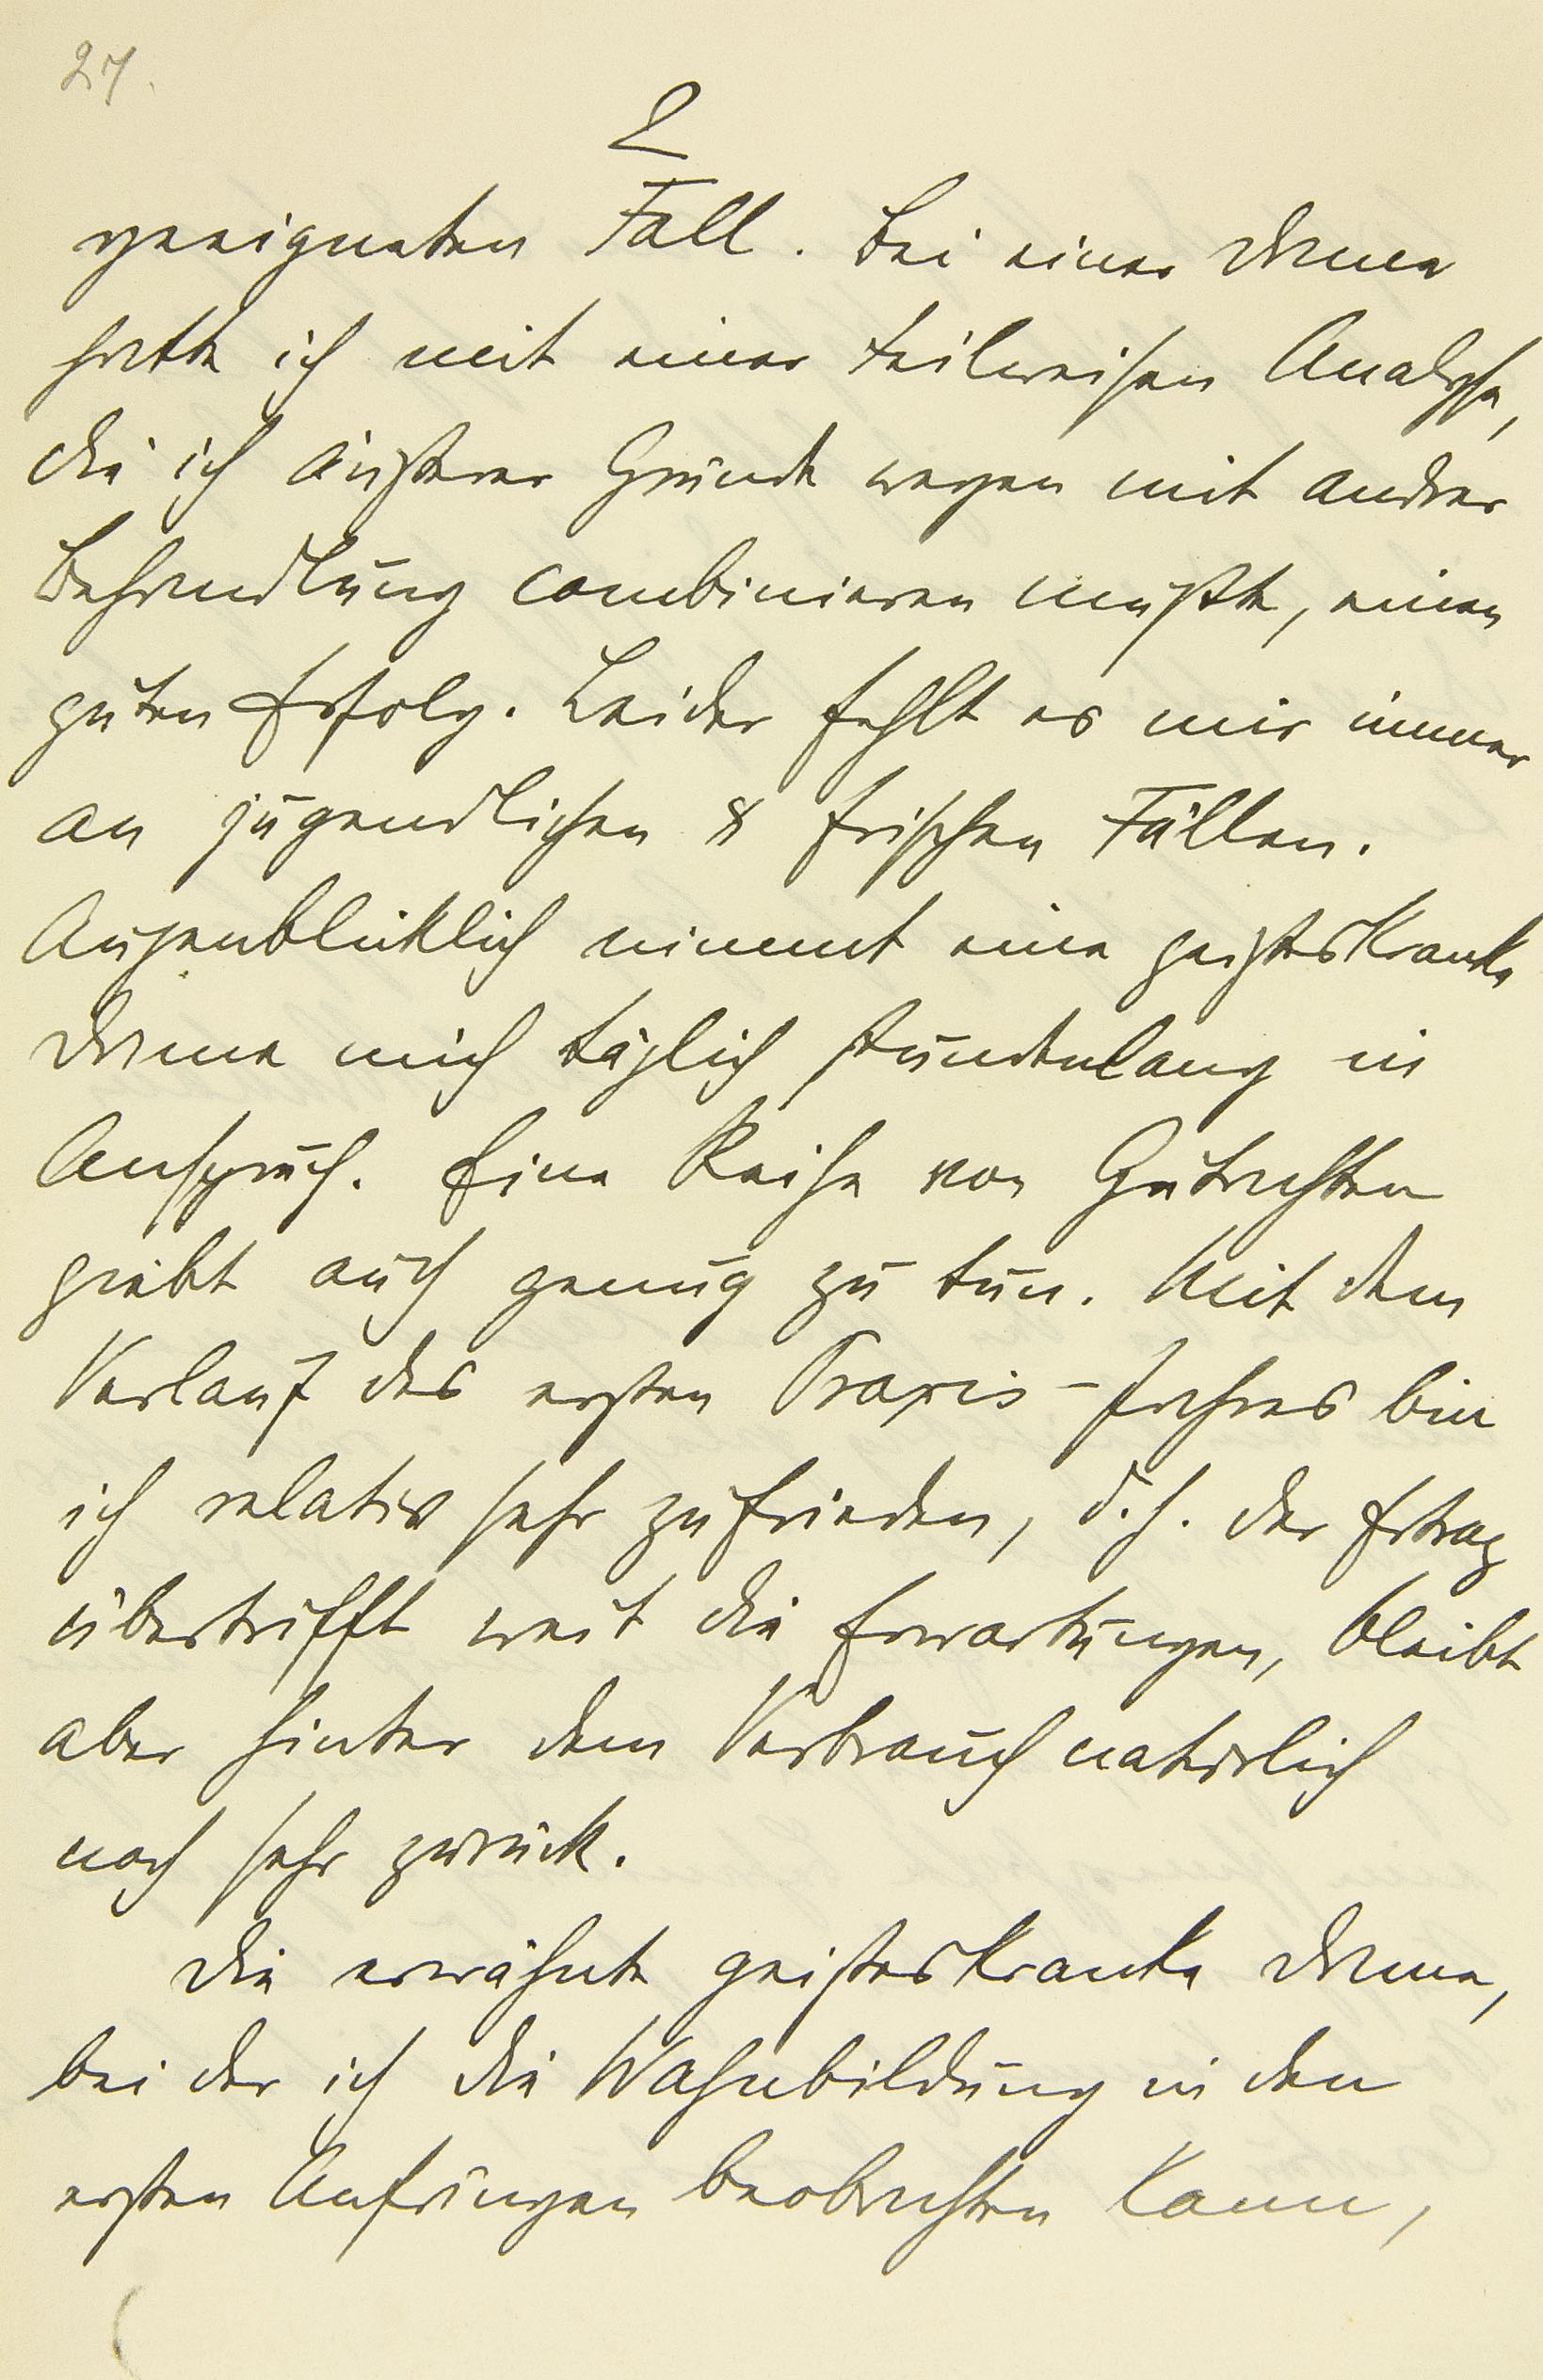 27.
2
geeigneten Fall. Bei einer Dame
hatte ich mit einer teilweisen Analyse,
die ich äußerer Gründe wegen mit andrer
Behandlung combinieren mußte, einen
guten Erfolg. Leider fehlt es mir immer
an jugendlichen & frischen Fällen.
Augenblicklich nimmt eine geisteskranke
Dame mich täglich stundenlang in
Anspruch. Eine Reihe von Gutachten
giebt auch genug zu tun. Mit dem
Verlauf des ersten Praxis-Jahres bin
ich relativ sehr zufrieden, d.h. der Ertrag
übertrifft weit die Erwartungen, bleibt
aber hinter dem Verbrauch natürlich
noch sehr zurück.
Die erwähnte geisteskranke Dame,
bei der ich die Wahnbildung in den
ersten Anfängen beobachten kann,